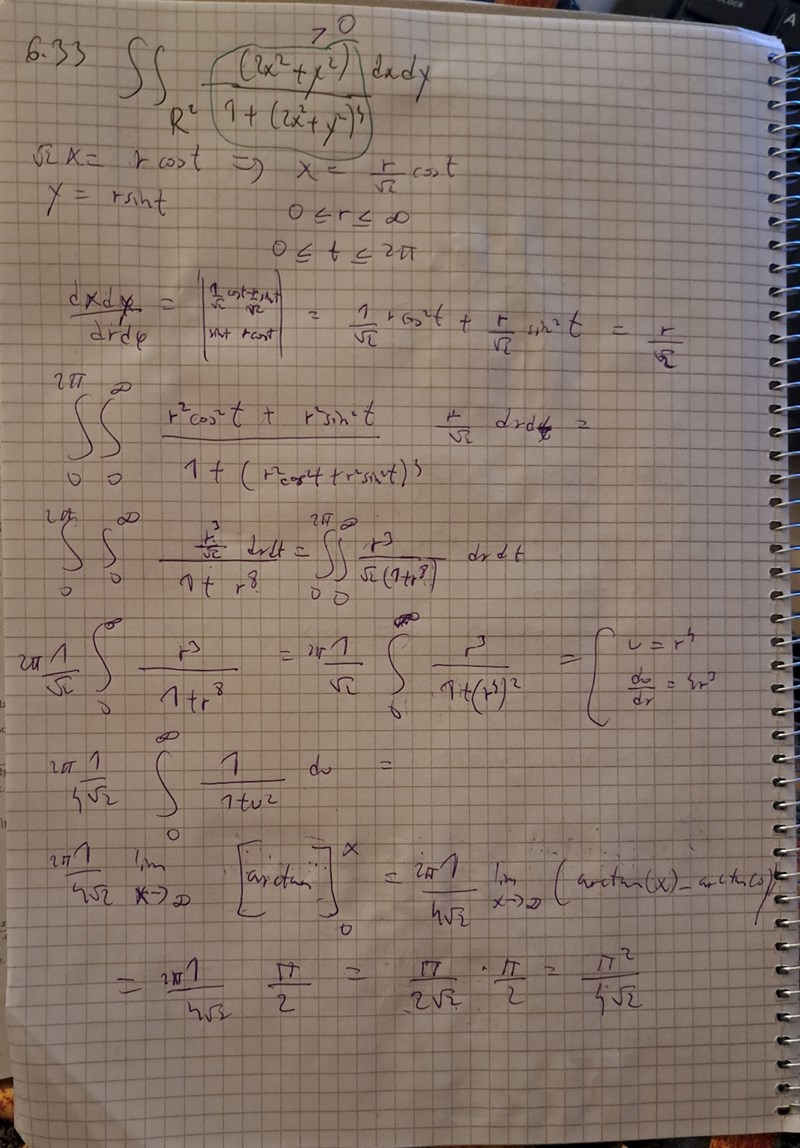 > 0
6.33 ∬_{R²} (2x²+y²) / (1 + (2x²+y²)⁴) dxdy
√2 x = r cos t ⇒ x = r/√2 cos t
y = r sin t
0 ≤ r ≤ ∞
0 ≤ t ≤ 2π
dxdy / drdφ = | 1/√2 cos t -r/√2 sin t ; sin t r cos t | = 1/√2 r cos² t + r/√2 sin² t = r/√2
∫_0^{2π} ∫_0^∞ (r² cos² t + r² sin² t) / (1 + (r² cos² t + r² sin² t)⁴) r/√2 drdt =
∫_0^{2π} ∫_0^∞ (r³/√2) / (1 + r⁸) drdt = ∫_0^{2π} ∫_0^∞ r³ / (√2 (1+r⁸)) drdt
2π 1/√2 ∫_0^∞ r³ / (1+r⁸) = 2π 1/√2 ∫_0^∞ r³ / (1+(r⁴)²) = { u = r⁴ ; du/dr = 4r³
2π 1/(4√2) ∫_0^∞ 1/(1+u²) du =
2π 1/(4√2) lim_{x→∞} [arctan]_0^x = 2π 1/(4√2) lim_{x→∞} (arctan(x) – arctan(0))
= 2π 1/(4√2) π/2 = π/(2√2) · π/2 = π²/(4√2)